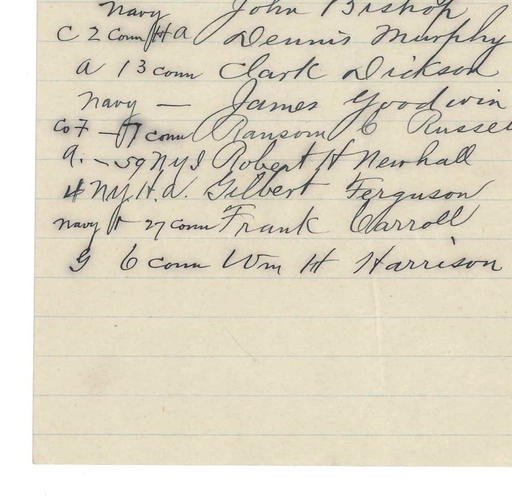 Navy John Bishop
C 2 Conn H A Dennis Murphy
A 13 Conn Clark Dickson
Navy — James Goodwin
Co F — 7 Conn Ransom C Russel
A. — 59 NYI Robert H Newhall
4 NY.H.A. Gilbert Ferguson
Navy + 27 Conn Frank Carroll
G 6 Conn Wm H Harrison